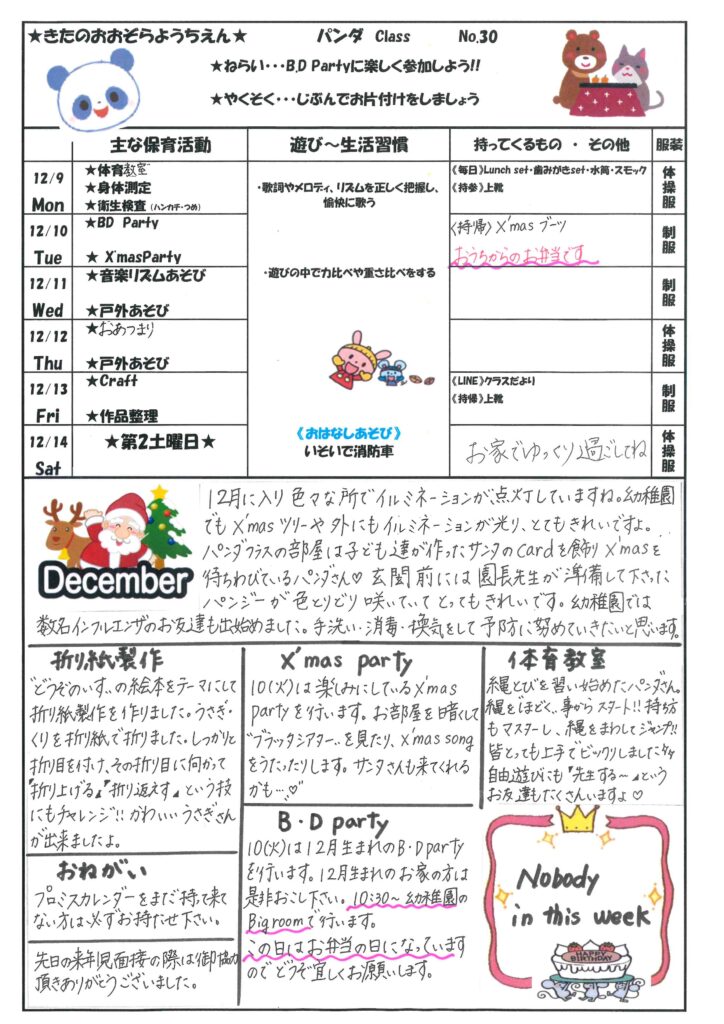 ★きたのおおぞらようちえん★ パンダ Class No.30
★ねらい・・・B.D Partyに楽しく参加しよう!!
★やくそく・・・じぶんでお片付けをしましょう
主な保育活動 遊び～生活習慣 持ってくるもの ・ その他 服装
12/9 Mon
★体育教室
★身体測定
★衛生検査 (ハンカチ・つめ)
・歌詞やメロディ、リズムを正しく把握し、
愉快に歌う
《毎日》Lunch set・歯みがきset・水筒・スモック
《持参》上靴
体操服
12/10 Tue
★BD Party
★ X'masParty
〈持帰〉X'mas ブーツ
おうちからのお弁当です
制服
12/11 Wed
★音楽リズムあそび
★戸外あそび
・遊びの中で力比べや重さ比べをする
制服
12/12 Thu
★おあつまり
★戸外あそび
体操服
12/13 Fri
★Craft
★作品整理
《LINE》クラスだより
《持帰》上靴
制服
12/14 Sat
★第2土曜日★
《おはなしあそび》
いそいで消防車
お家でゆっくり過ごしてね
体操服
December
12月に入り色々な所でイルミネーションが点灯していますね。幼稚園
でもX'masツリーや外にもイルミネーションが光り、とてもきれいですよ。
パンダクラスの部屋は子ども達が作ったサンタのcardを飾りX'masを
待ちわびているパンダさん♡ 玄関前には園長先生が準備して下さった
パンジーが色とりどり咲いていてとってもきれいです。幼稚園では
数名インフルエンザのお友達も出始めました。手洗い・消毒・換気をして予防に努めていきたいと思います。
折り紙製作
"どうぞのいす"の絵本をテーマにして
折り紙製作を作りました。うさぎ・
くりを折り紙で折りました。しっかりと
折り目を付け、その折り目に向かって
『折り上げる』『折り返えす』という技
にもチャレンジ!! かわいいうさぎさん
が出来ましたよ。
X'mas party
10(火)は楽しみにしているX'mas
partyを行います。お部屋を暗くして
"ブラックシアター"を見たり、X'mas song
をうたったりします。サンタさんも来てくれる
かも…♡"
体育教室
縄とびを習い始めたパンダさん。
縄をほどく、事からスタート!! 持ち方
もマスターし、縄をまわしてジャンプ!!
皆とっても上手でビックリしました
自由遊びにも『先生する～』という
お友達もたくさんいますよ♡
おねがい
プロミスカレンダーをまだ持って来て
ない方は必ずお持たせ下さい。
先日の来年児面接の際は御協力
頂きありがとうございました。
B・D party
10(火)は12月生まれのB・D party
を行います。12月生まれのお家の方は
是非おこし下さい。10:30～幼稚園の
Big roomで行います。
この日はお弁当の日になっています
のでどうぞ宜しくお願いします。
Nobody
in this week
HAPPY
BIRTHDAY